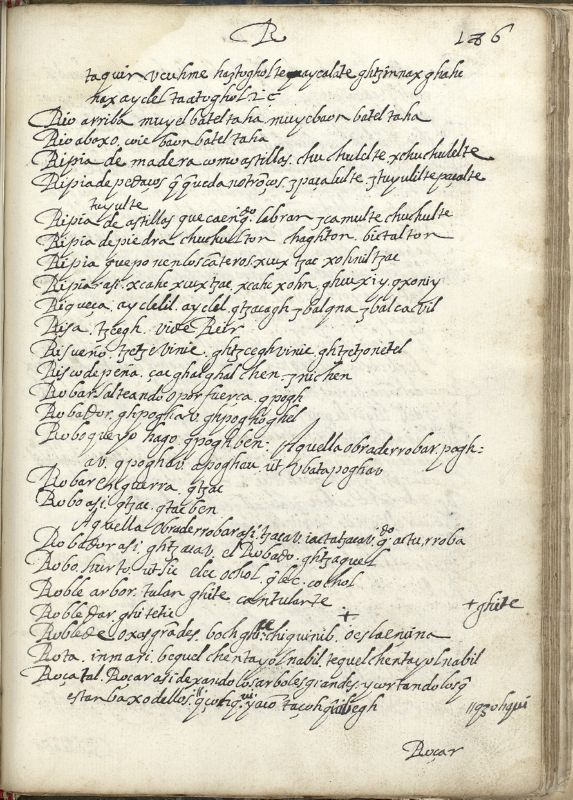 R 186
taquin vcuhme haztoghol te qaycalate ghtzinnax ghahe
hax ayclel taatoghol zc
Rio arriba muyel batel taha muycbaon batel taha
Rio aboxo, coie baon batel taha
Ripia de madera como astillas. chu chulelte xchuchulelte
Ripia de pedaços q̃ queda notroços. zpaçalulte ztuyulilte paçalte
tuyulte
Ripia de astillas que caen qdo labran zcamulte chuchulte
Ripia de piedra chuchulton chaghton. bictalton
Ripia que ponen los cãteros xux tzac xohniltzac
Ripiar asi. xcahc xuxtzac xcahc xohn, ghuxiy. gxoniy
Riqueça, ayclelil. ayclel. gtzacagh zbalqna zbalcavil
Risa. tzeegh. vide Reir
Risueño. tzetzevinic. ghtzeghvinic. ghtzetzonetel
Risco de peña, çacghalghal chen. znichen
Robar salteando o por fuerça. gpogh
Robador. ghpoghav. ghpoghoghel
Robo que yo hago. gpoghben: Aquella obra de robar. pogh:
av. gpoghav. apoghau, ut Vbatapoghav
Robar en guerra. gtzac
Robo asi. gtzac. gtacben
Aquella obra de robar asi. tzacav. iactatzacav. qdo actu, roba
Robador asi. ghtzacav. el Robado. ghtzaquel
Robo, hurto, ut sic elec ochol. q̃ lec. cochol
Roble arbor. tulan ghite cantulante +ghite
Robledar. ghitetic +
Roble de oxas grãdes. boch ghite chiquinib. oeslaenzina
Rota. inmari. bequel chentayolnabil, tequel chentayolnabil
Roça tal. Roçar asi dexando los arboles grandes, y cortando los q̃
estan baxo dellos. " "gzohqui
Roçar